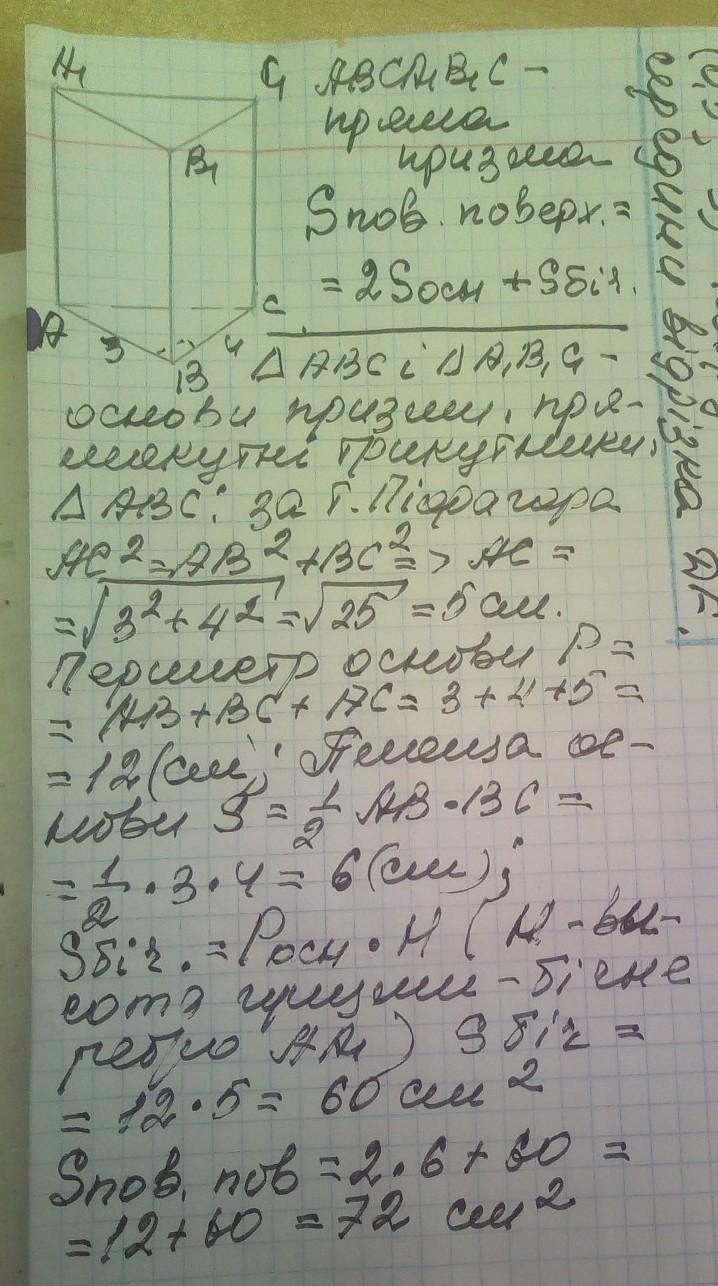 A₁
C₁
B₁
A
C
B
3
4
ABCA₁B₁C –
пряма
призма
Sпов. поверх. =
= 2Sосн + Sбіч.
Δ ABC і Δ A₁B₁C₁ –
основи призми, пря-
мокутні трикутники.
Δ ABC: за т. Піфагора
AC² = AB² + BC² => AC =
= √3² + 4² = √25 = 5 см.
Периметр основи P =
= AB + BC + AC = 3 + 4 + 5 =
= 12 (см); Площа ос-
нови S = 1/2 AB · BC =
= 1/2 · 3 · 4 = 6 (см);
Sбіч. = Pосн · H ( H - вы-
сота призми – бічне
ребро AA₁) S біч =
= 12 · 5 = 60 см²
Sпов. пов = 2 · 6 + 60 =
= 12 + 60 = 72 см²
середини відрізка